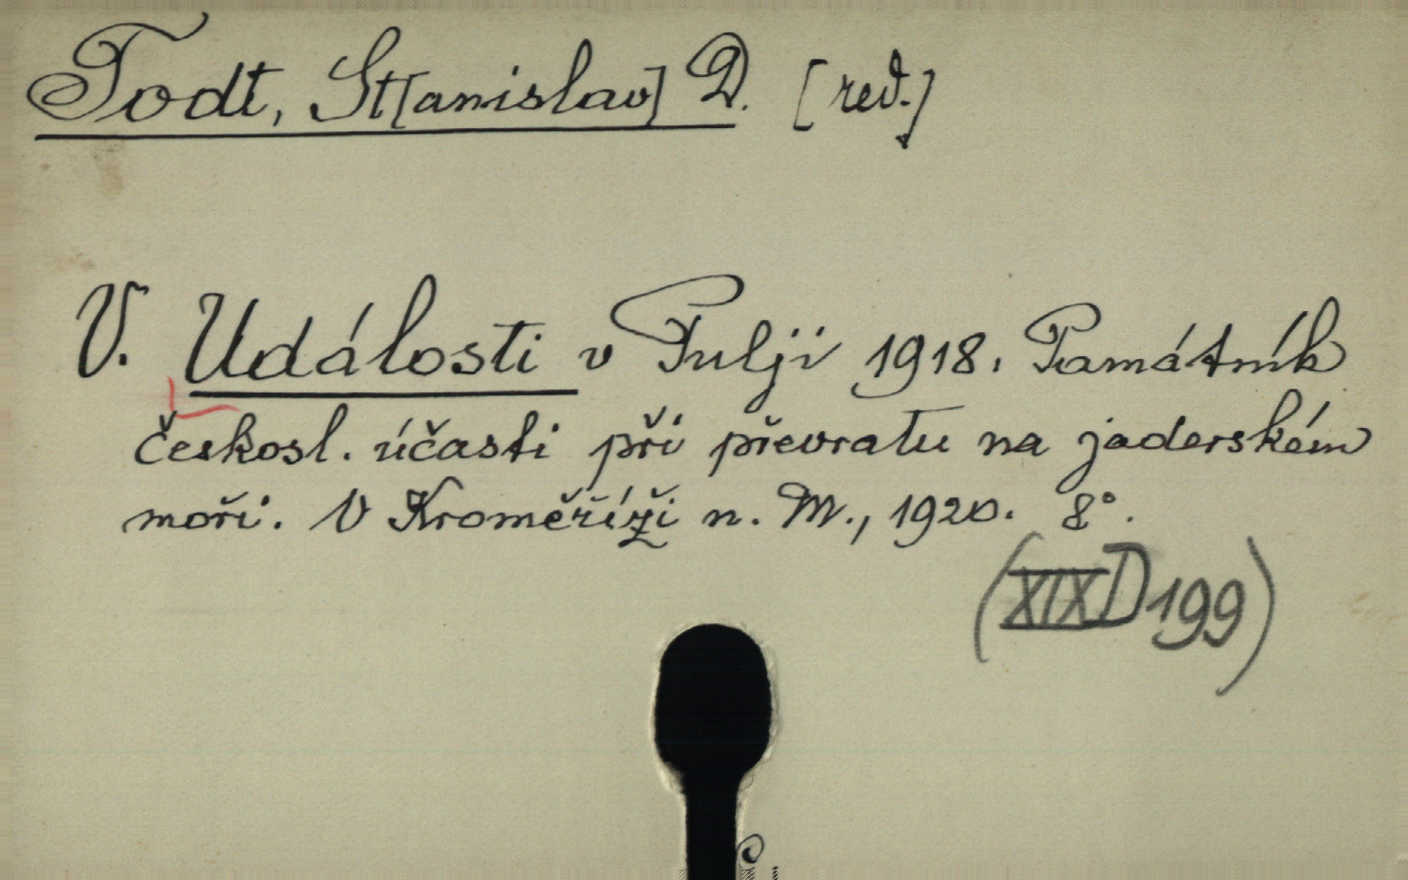 Todt, St[anislav] D. [red.]
V. Události v Pulji 1918. Památník
českosl. účasti při převratu na jaderském
moři. V Kroměříži n. M., 1920. 8°.
(XIX D 199)